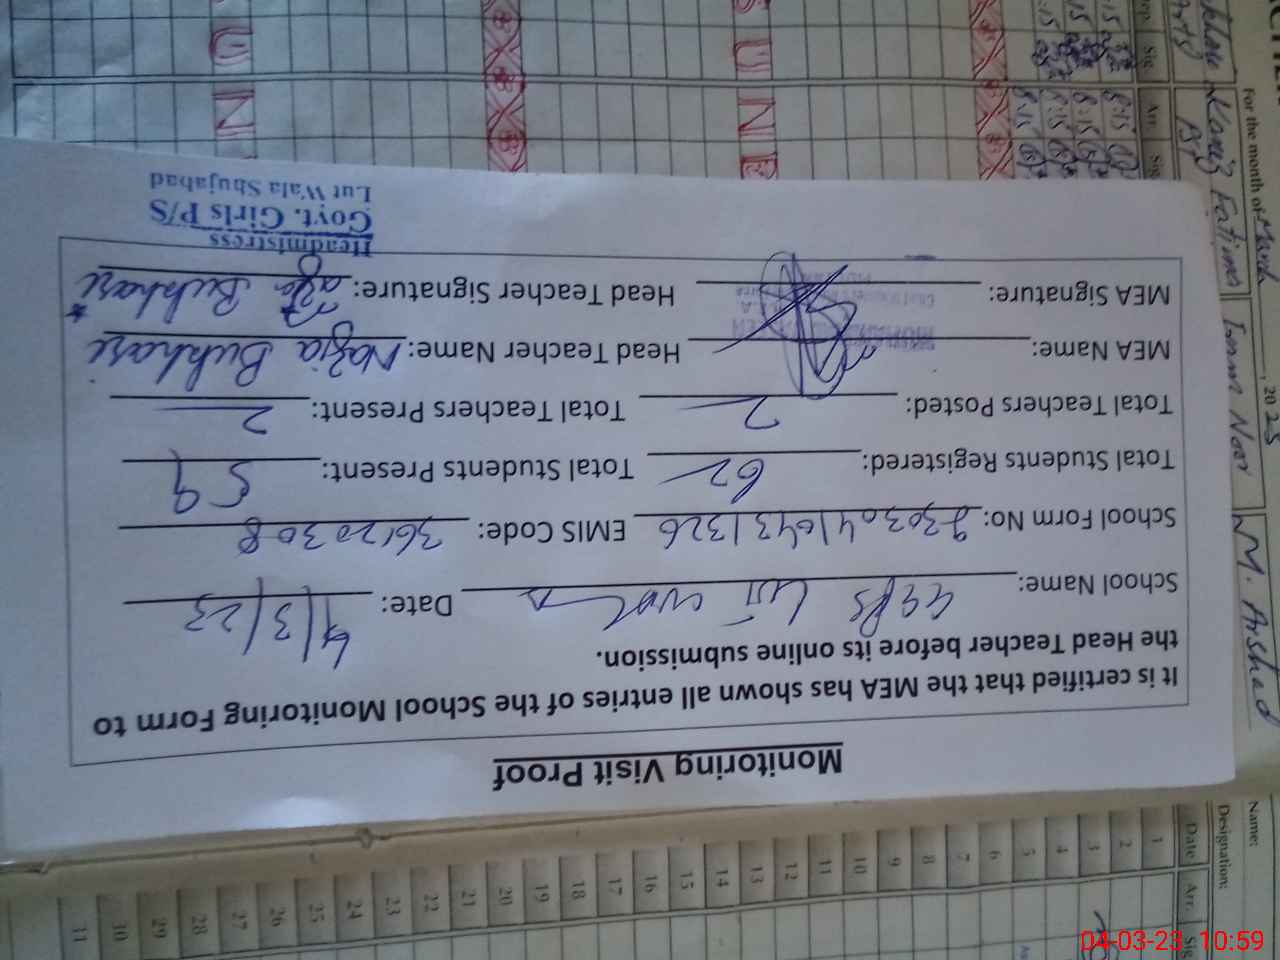 Monitoring Visit Proof
It is certified that the MEA has shown all entries of the School Monitoring Form to
the Head Teacher before its online submission.
School Name: GGPS Lut wala Date: 4/3/23
School Form No: 23030410431326 EMIS Code: 36120308
Total Students Registered: 62 Total Students Present: 59
Total Teachers Posted: 2 Total Teachers Present: 2
MEA Name: Head Teacher Name: Nazia Bukhari
MEA Signature: Head Teacher Signature: Bukhari
Headmistress
Govt. Girls P/S
Lut Wala Shujabad
For the month of March, 2023
Kaniz Fatima
Iram Noor
M. Arshad
Arr. Sig
8:15
8:15
8:15
8:15
S U N
S U N
Name:
Designation:
Date 1 2 3 4 5 6 7 8 9 10 11 12 13 14 15 16 17 18 19 20 21 22 23 24 25 26 27 28 29 30 31
Arr.
Sig
04-03-23 10:59